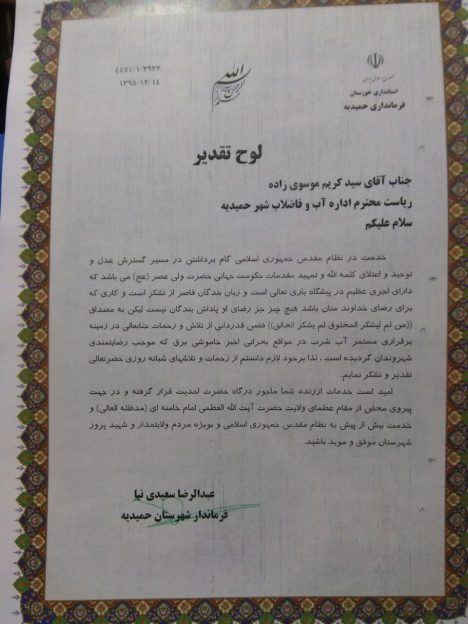 ۴۴۷۱/۱/۳۹۳۶
۱۳۹۵/۱۲/۱۴
جمهوری اسلامی ایران
استانداری خوزستان
فرمانداری حمیدیه
لوح تقدیر
جناب آقای سید کریم موسوی زاده
ریاست محترم اداره آب و فاضلاب شهر حمیدیه
سلام علیکم
خدمت در نظام مقدس جمهوری اسلامی گام برداشتن در مسیر گسترش عدل و
توحید و اعتلای کلمه الله و تمهید مقدمات حکومت جهانی حضرت ولی عصر (عج) می باشد که
دارای اجری عظیم در پیشگاه باری تعالی است و زبان بندگان قاصر از تشکر است و کاری که
برای رضای خداوند منان باشد هیچ چیز جز رضای او پاداش بندگان نیست لیکن به مصداق
((من لم یشکر المخلوق لم یشکر الخالق)) ضمن قدردانی از تلاش و زحمات جنابعالی در زمینه
برقراری مستمر آب شرب در مواقع بحرانی اخیر خاموشی برق که موجب رضایتمندی
شهروندان گردیده است ، لذا برخود لازم دانستم از زحمات و تلاشهای شبانه روزی حضرتعالی
تقدیر و تشکر نمایم.
امید است خدمات ارزنده شما ماجور درگاه حضرت احدیت قرار گرفته و در جهت
پیروی محض از مقام عظمای ولایت حضرت آیت الله العظمی امام خامنه ای (مدظله العالی) و
خدمت بیش از پیش به نظام مقدس جمهوری اسلامی و بویژه مردم ولایتمدار و شهید پرور
شهرستان موفق و موید باشید.
عبدالرضا سعیدی نیا
فرماندار شهرستان حمیدیه